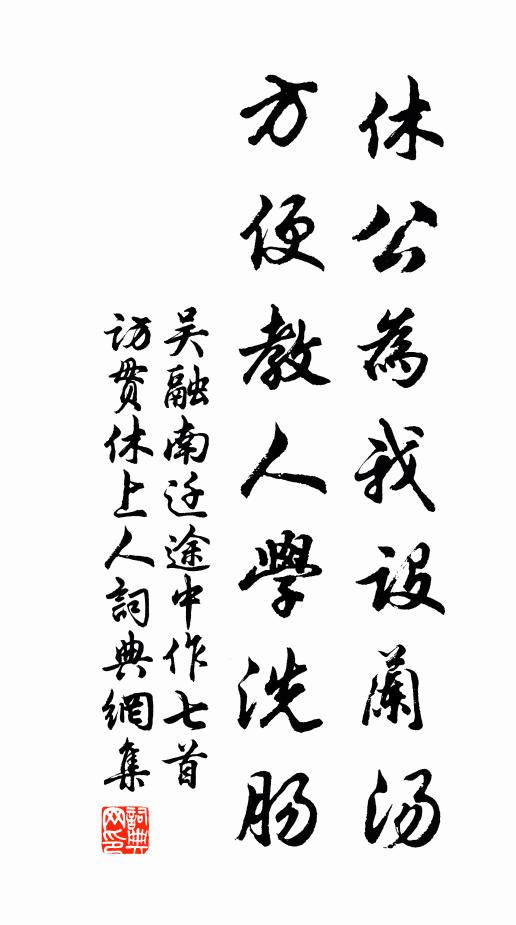 休公為我設蘭汤
方便教人學洗肠
吴融南迁途中作七首
访贯休上人詞典網集
詞典网印